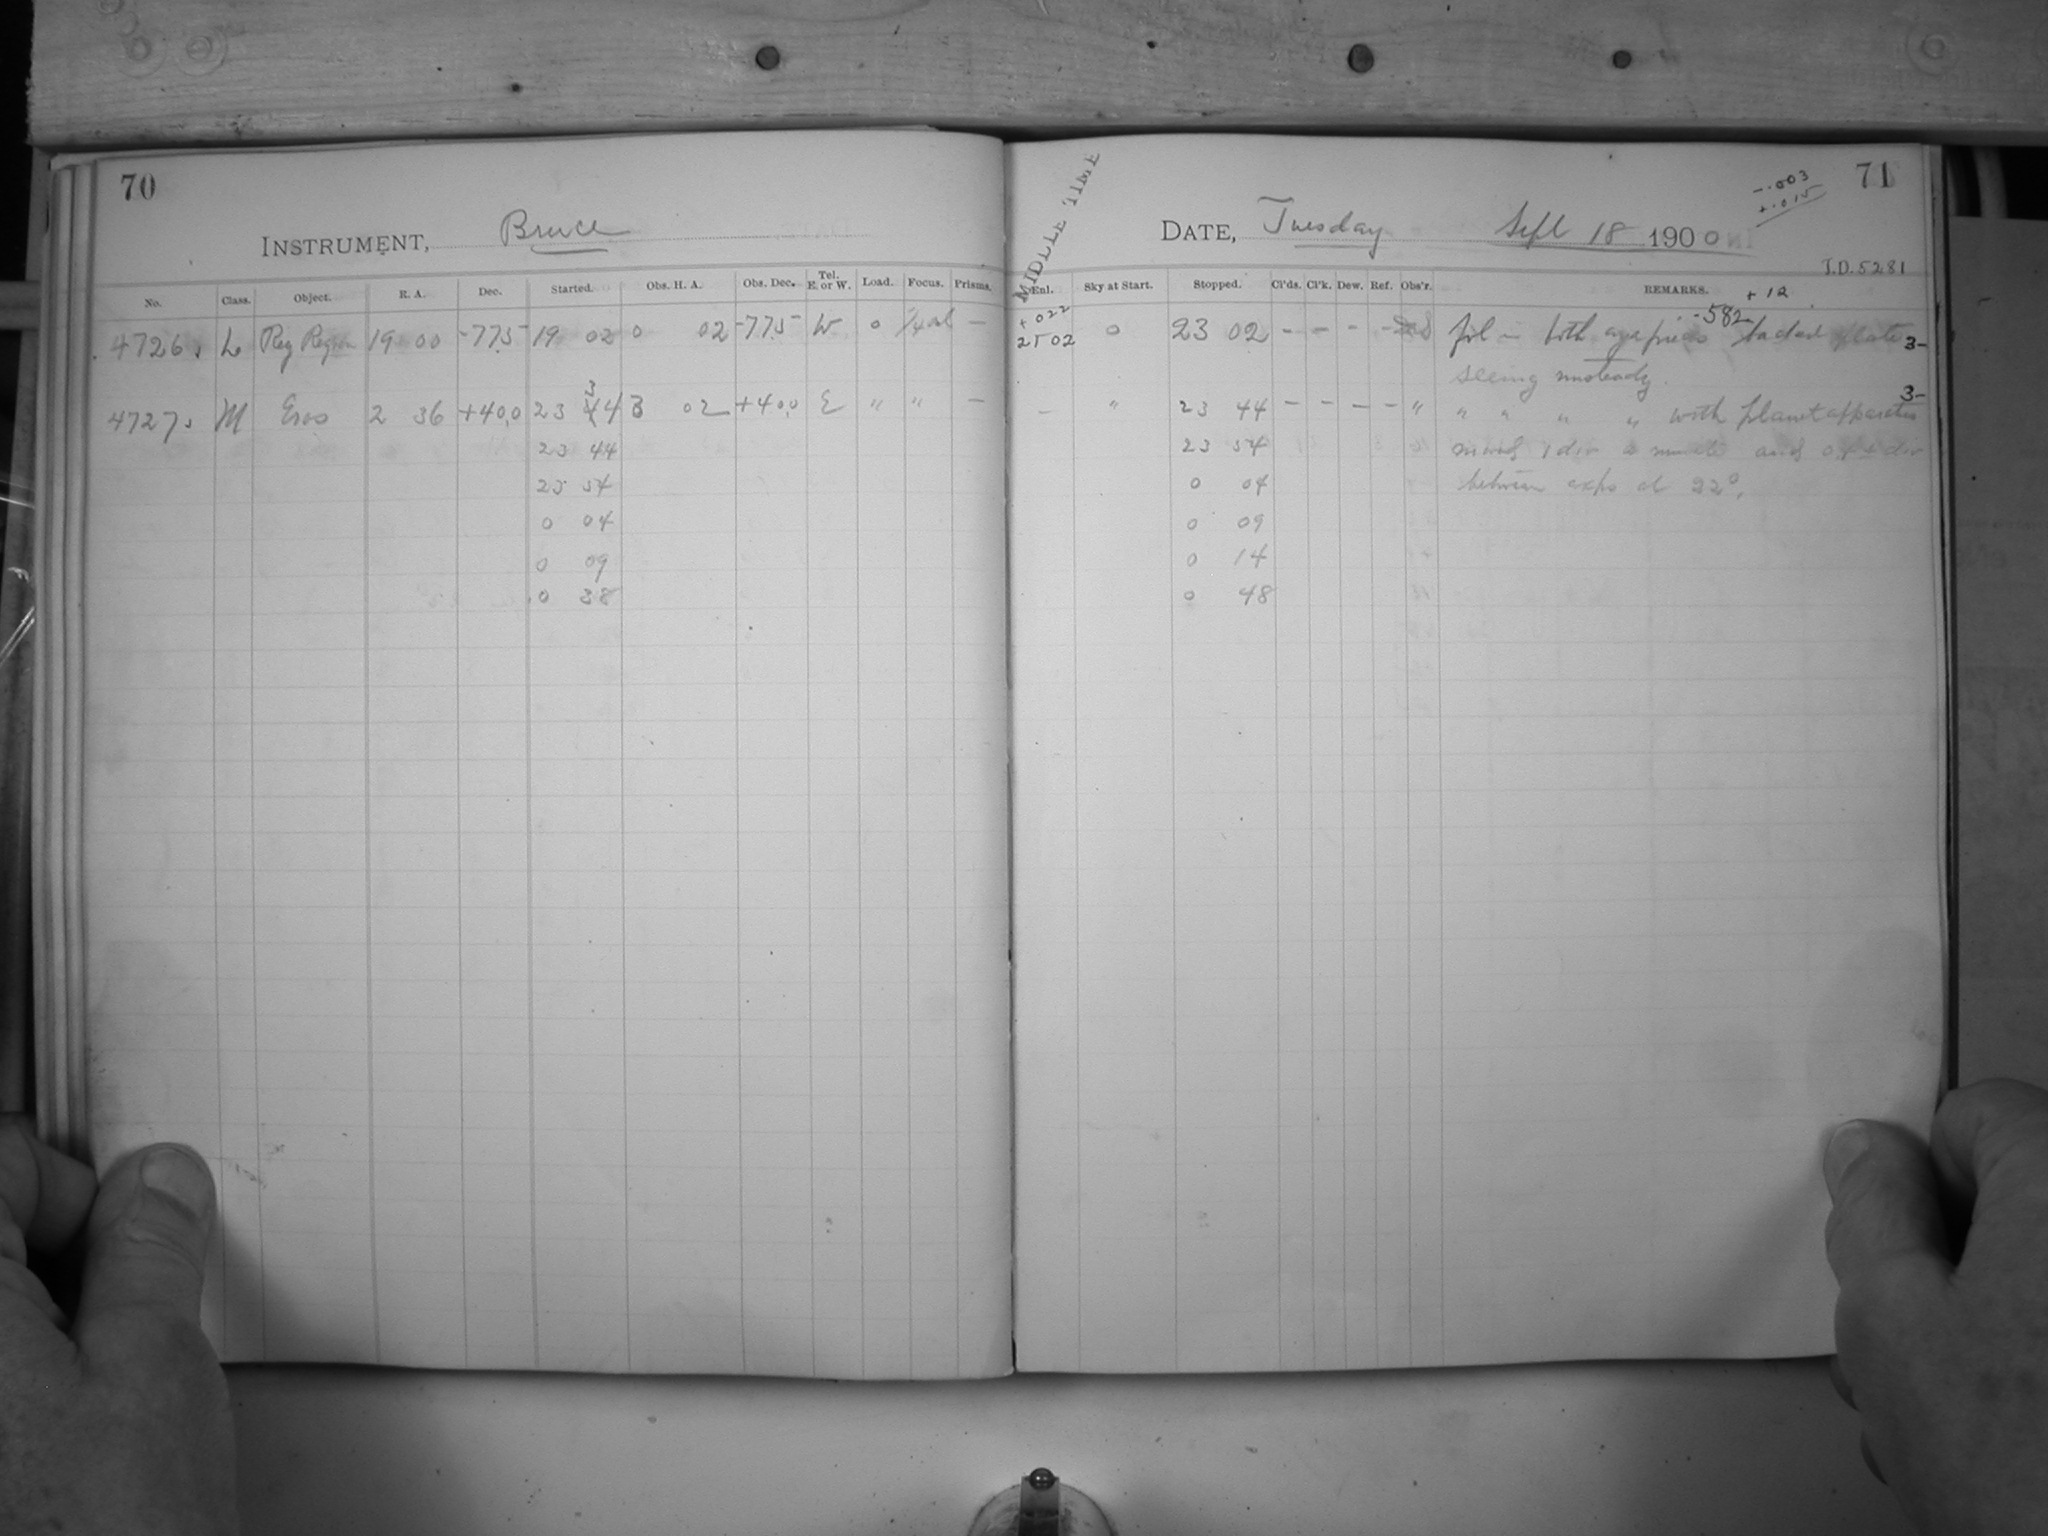 70
INSTRUMENT, Bruce
No. Class. Object. R. A. Dec. Started. Obs. H. A. Obs. Dec. Tel. E. or W. Load. Focus. Prisms.
4726. L Reg Region 19 00 -77.5 19 02 0 02 -77.5 W 0 —
4727. M Eros 2 36 +40.0 23 34 3 02 +40.0 E " " —
23 44
23 54
0 04
0 09
0 38
71
-.003
+.015
MIDLLE TIME
DATE, Tuesday Sept 18 1900
J.D. 5281
Enl. Sky at Start. Stopped. Cl'ds. Cl'k. Dew. Ref. Obs'r. REMARKS.
+12
-582
+022
2102 0 23 02 - - - - both eyepieces backed plate 3-
seeing unsteady.
— " 23 44 - - - - " " " " " with planet apparatus 3-
23 54 moved 1 div a minute and div
0 04 between exps at 22°.
0 09
0 14
0 48